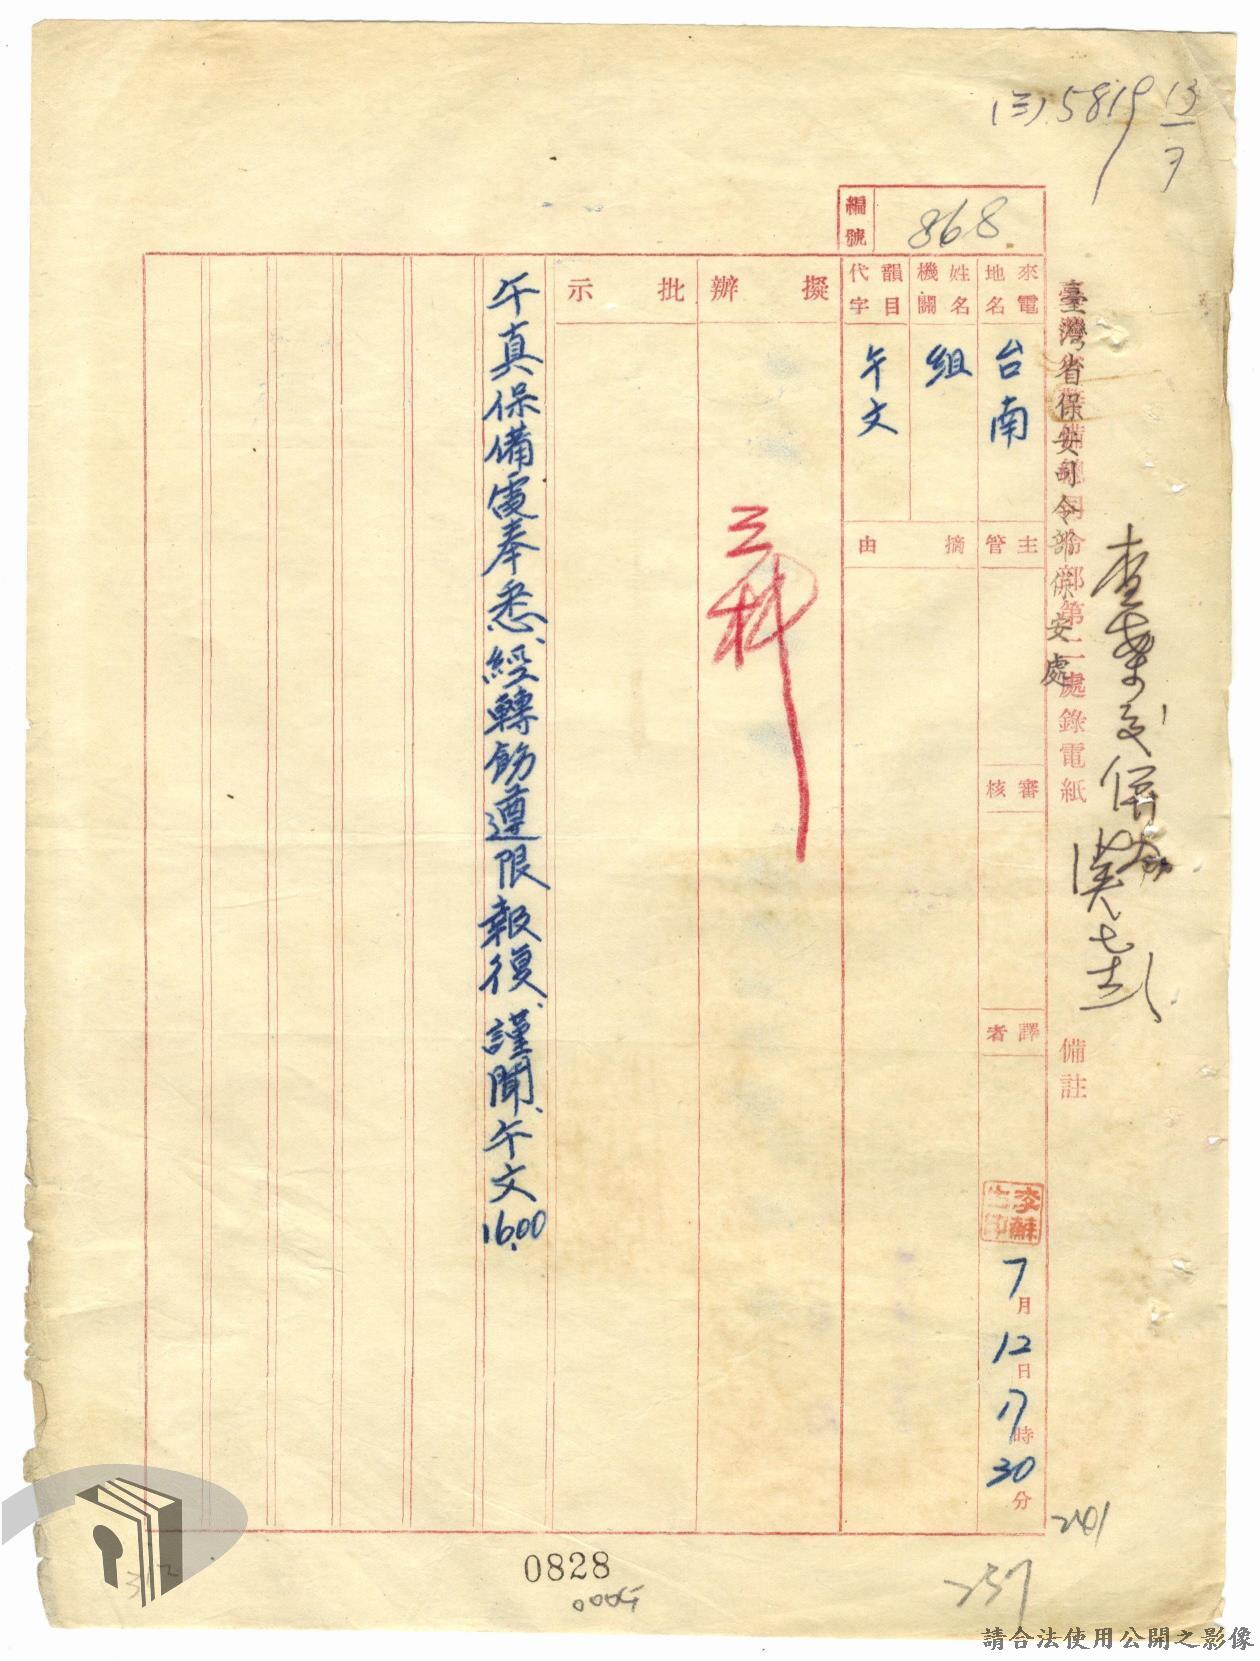 (三) 5819 13/7
編號 868
臺灣省保安司令部保安處
臺灣警備總司令部第二處錄電紙 備註
來電地名 台南
姓名機關 組
韻目代字 午文
主管
審核
譯者
李蘇生印
7月12日17時30分
摘由
擬辦
三科
批示
午真保備電奉悉、經轉飭遵限報復、謹聞、午文1600
241
237
0828
請合法使用公開之影像